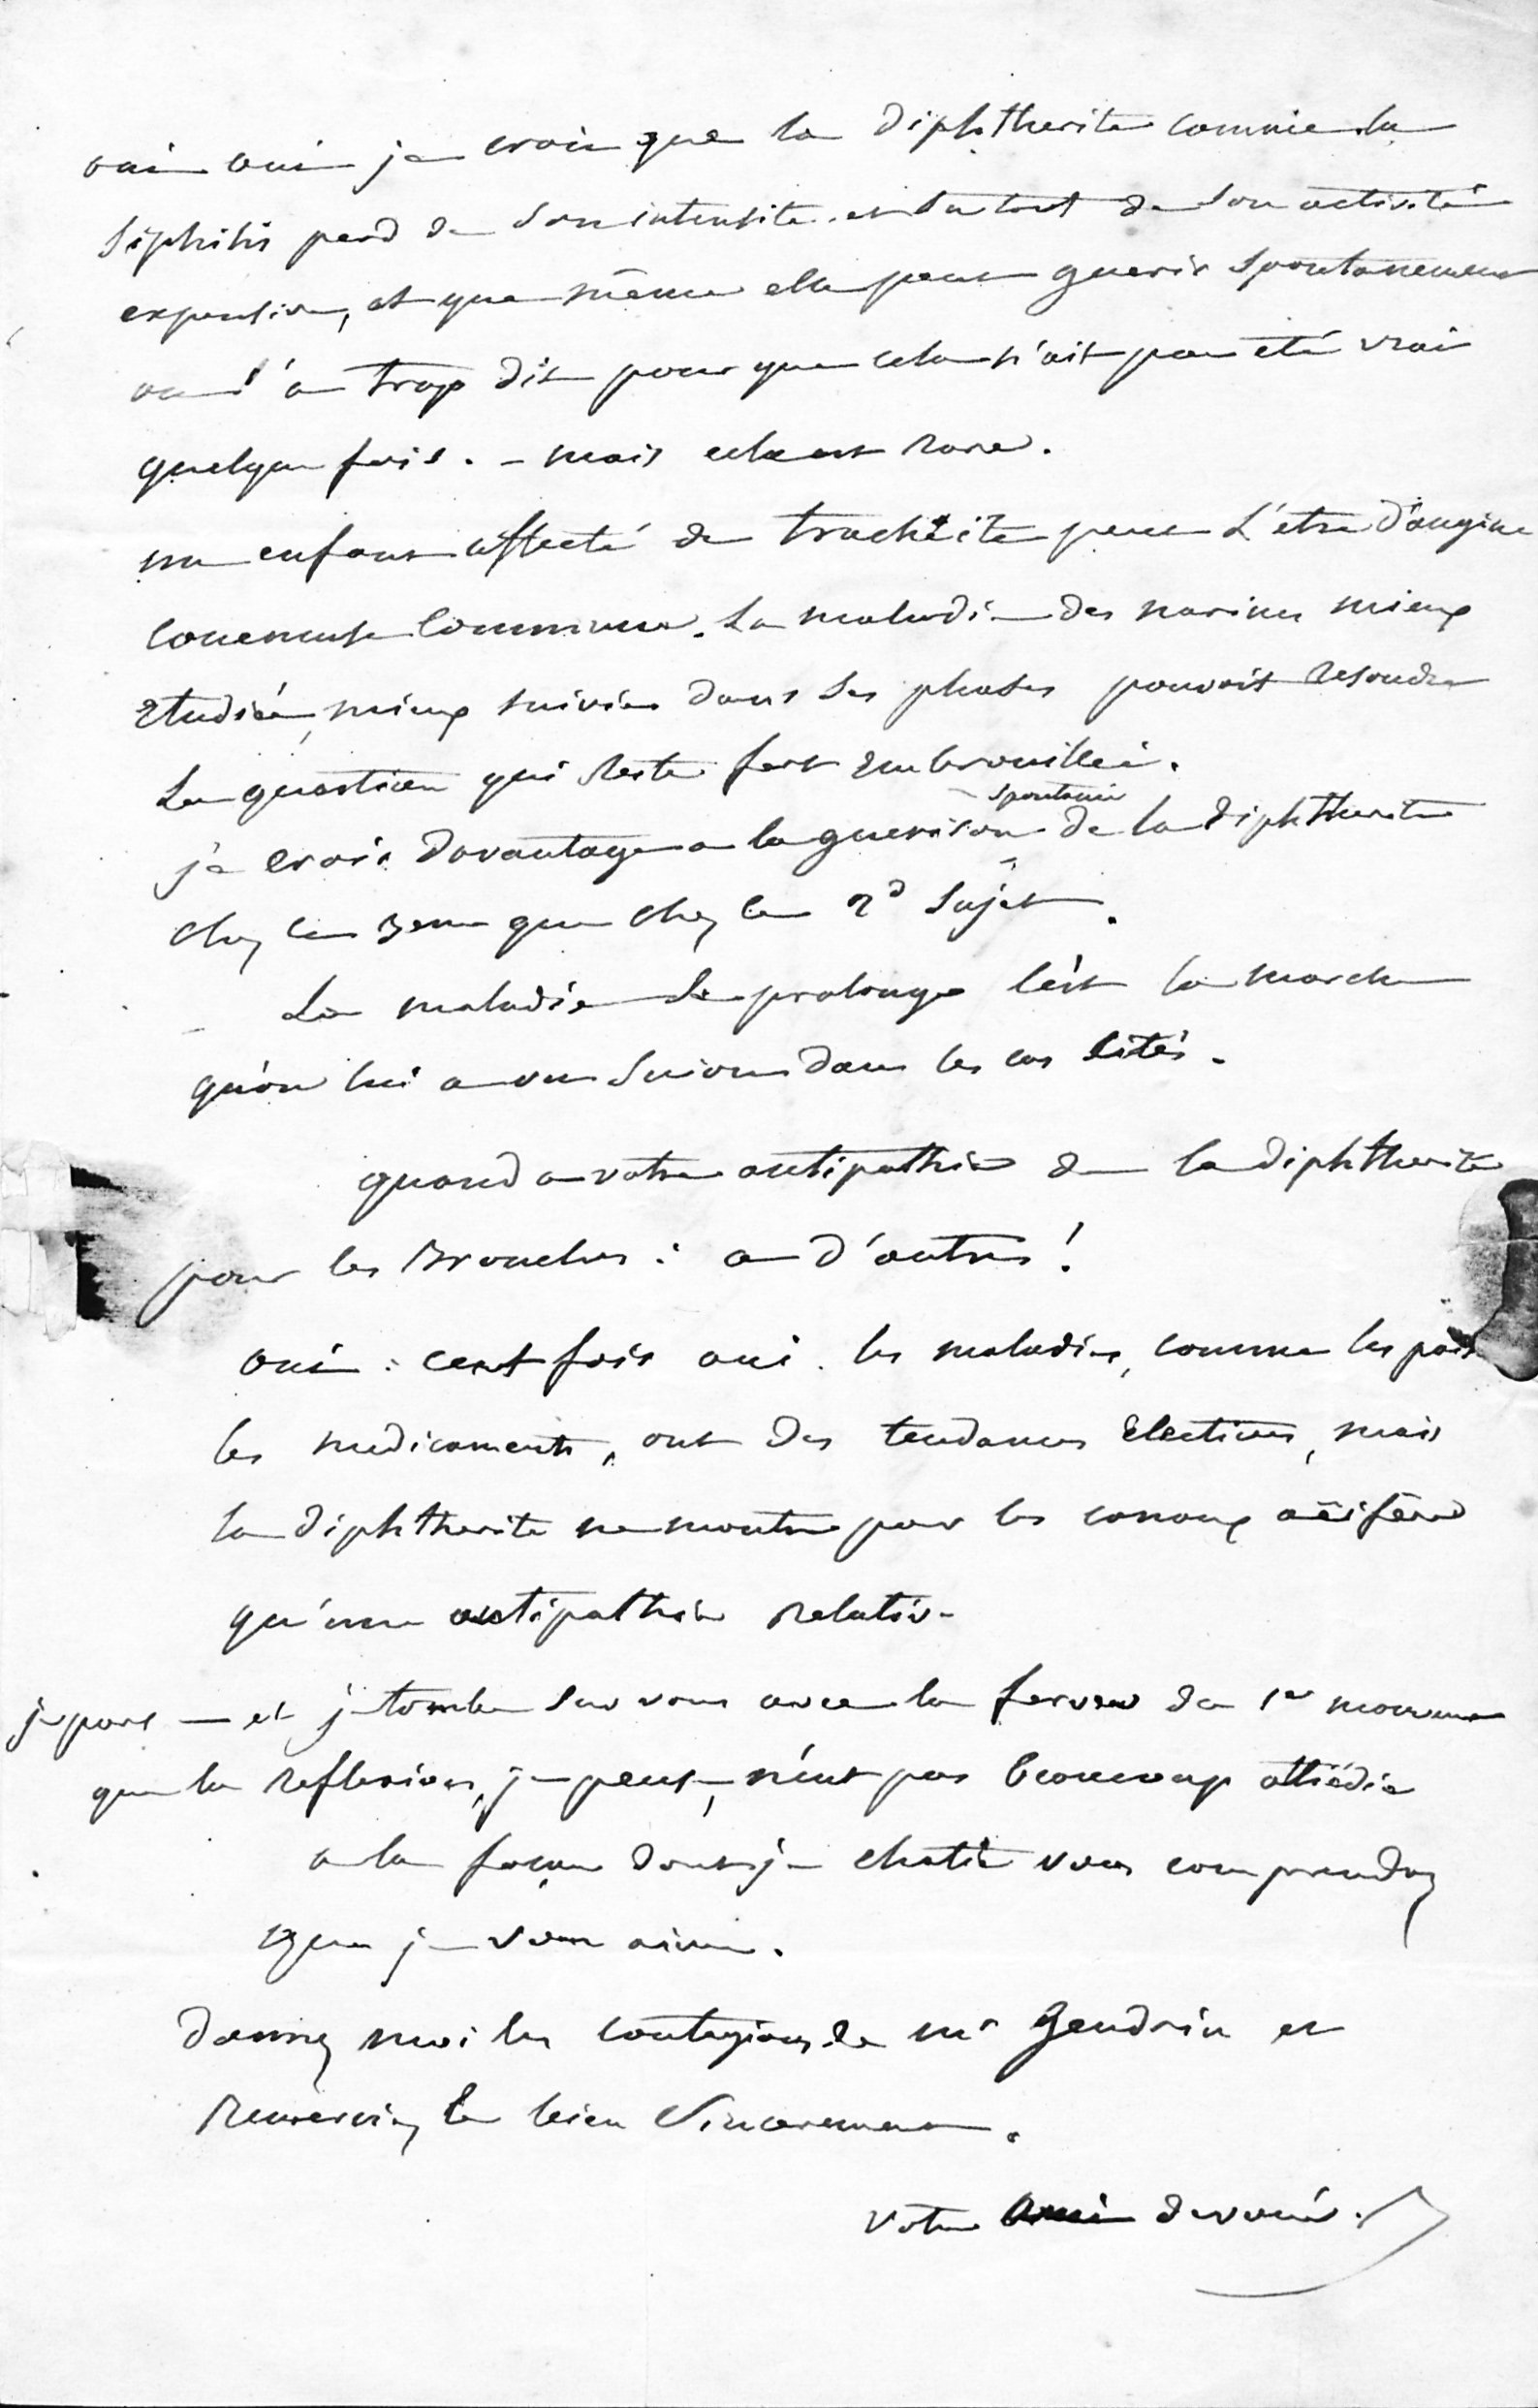 oui oui je crois que la diphtherite comme la
siphilis perd de son intensite et surtout de son activité
expansive, et que même elle peut guerir spontanement
on l'a trop dit pour que cela n'ait pas été vrai
quelque fois. – mais cela est rare.
un enfant affecté de trachéite peut l'etre d'angine
couenneuse commune. La maladie des narines mieux
etudiée, mieux suivie dans ses phases pouvait resoudre
la question qui reste fort embrouillée.
spontanée
je crois davantage a la guerison de la diphtherite
chez le 3eme que chez le 2d sujet.
La maladie se prolonge c'est la marche
qu'on lui a vu suivre dans les cas cités.
quand a votre antipathie de la diphtherite
pour les Bronches : a d'autres !
oui : cent fois oui. les maladies, comme les
les medicaments, ont des tendances electives, mais
la diphtherite ne montre pour les canaux aëifere
qu'une antipathie relative
je pars — et je tombe sur vous avec la ferveur du 1er mouvement
que la reflexion, je pense, n'eut pas beaucoup attiédie
a la façon dont je chatie vous comprendrez
que je vous aime.
donnez moi les contagions de mr Gendrin et
remerciez le bien sincerement.
Votre ami devoué.